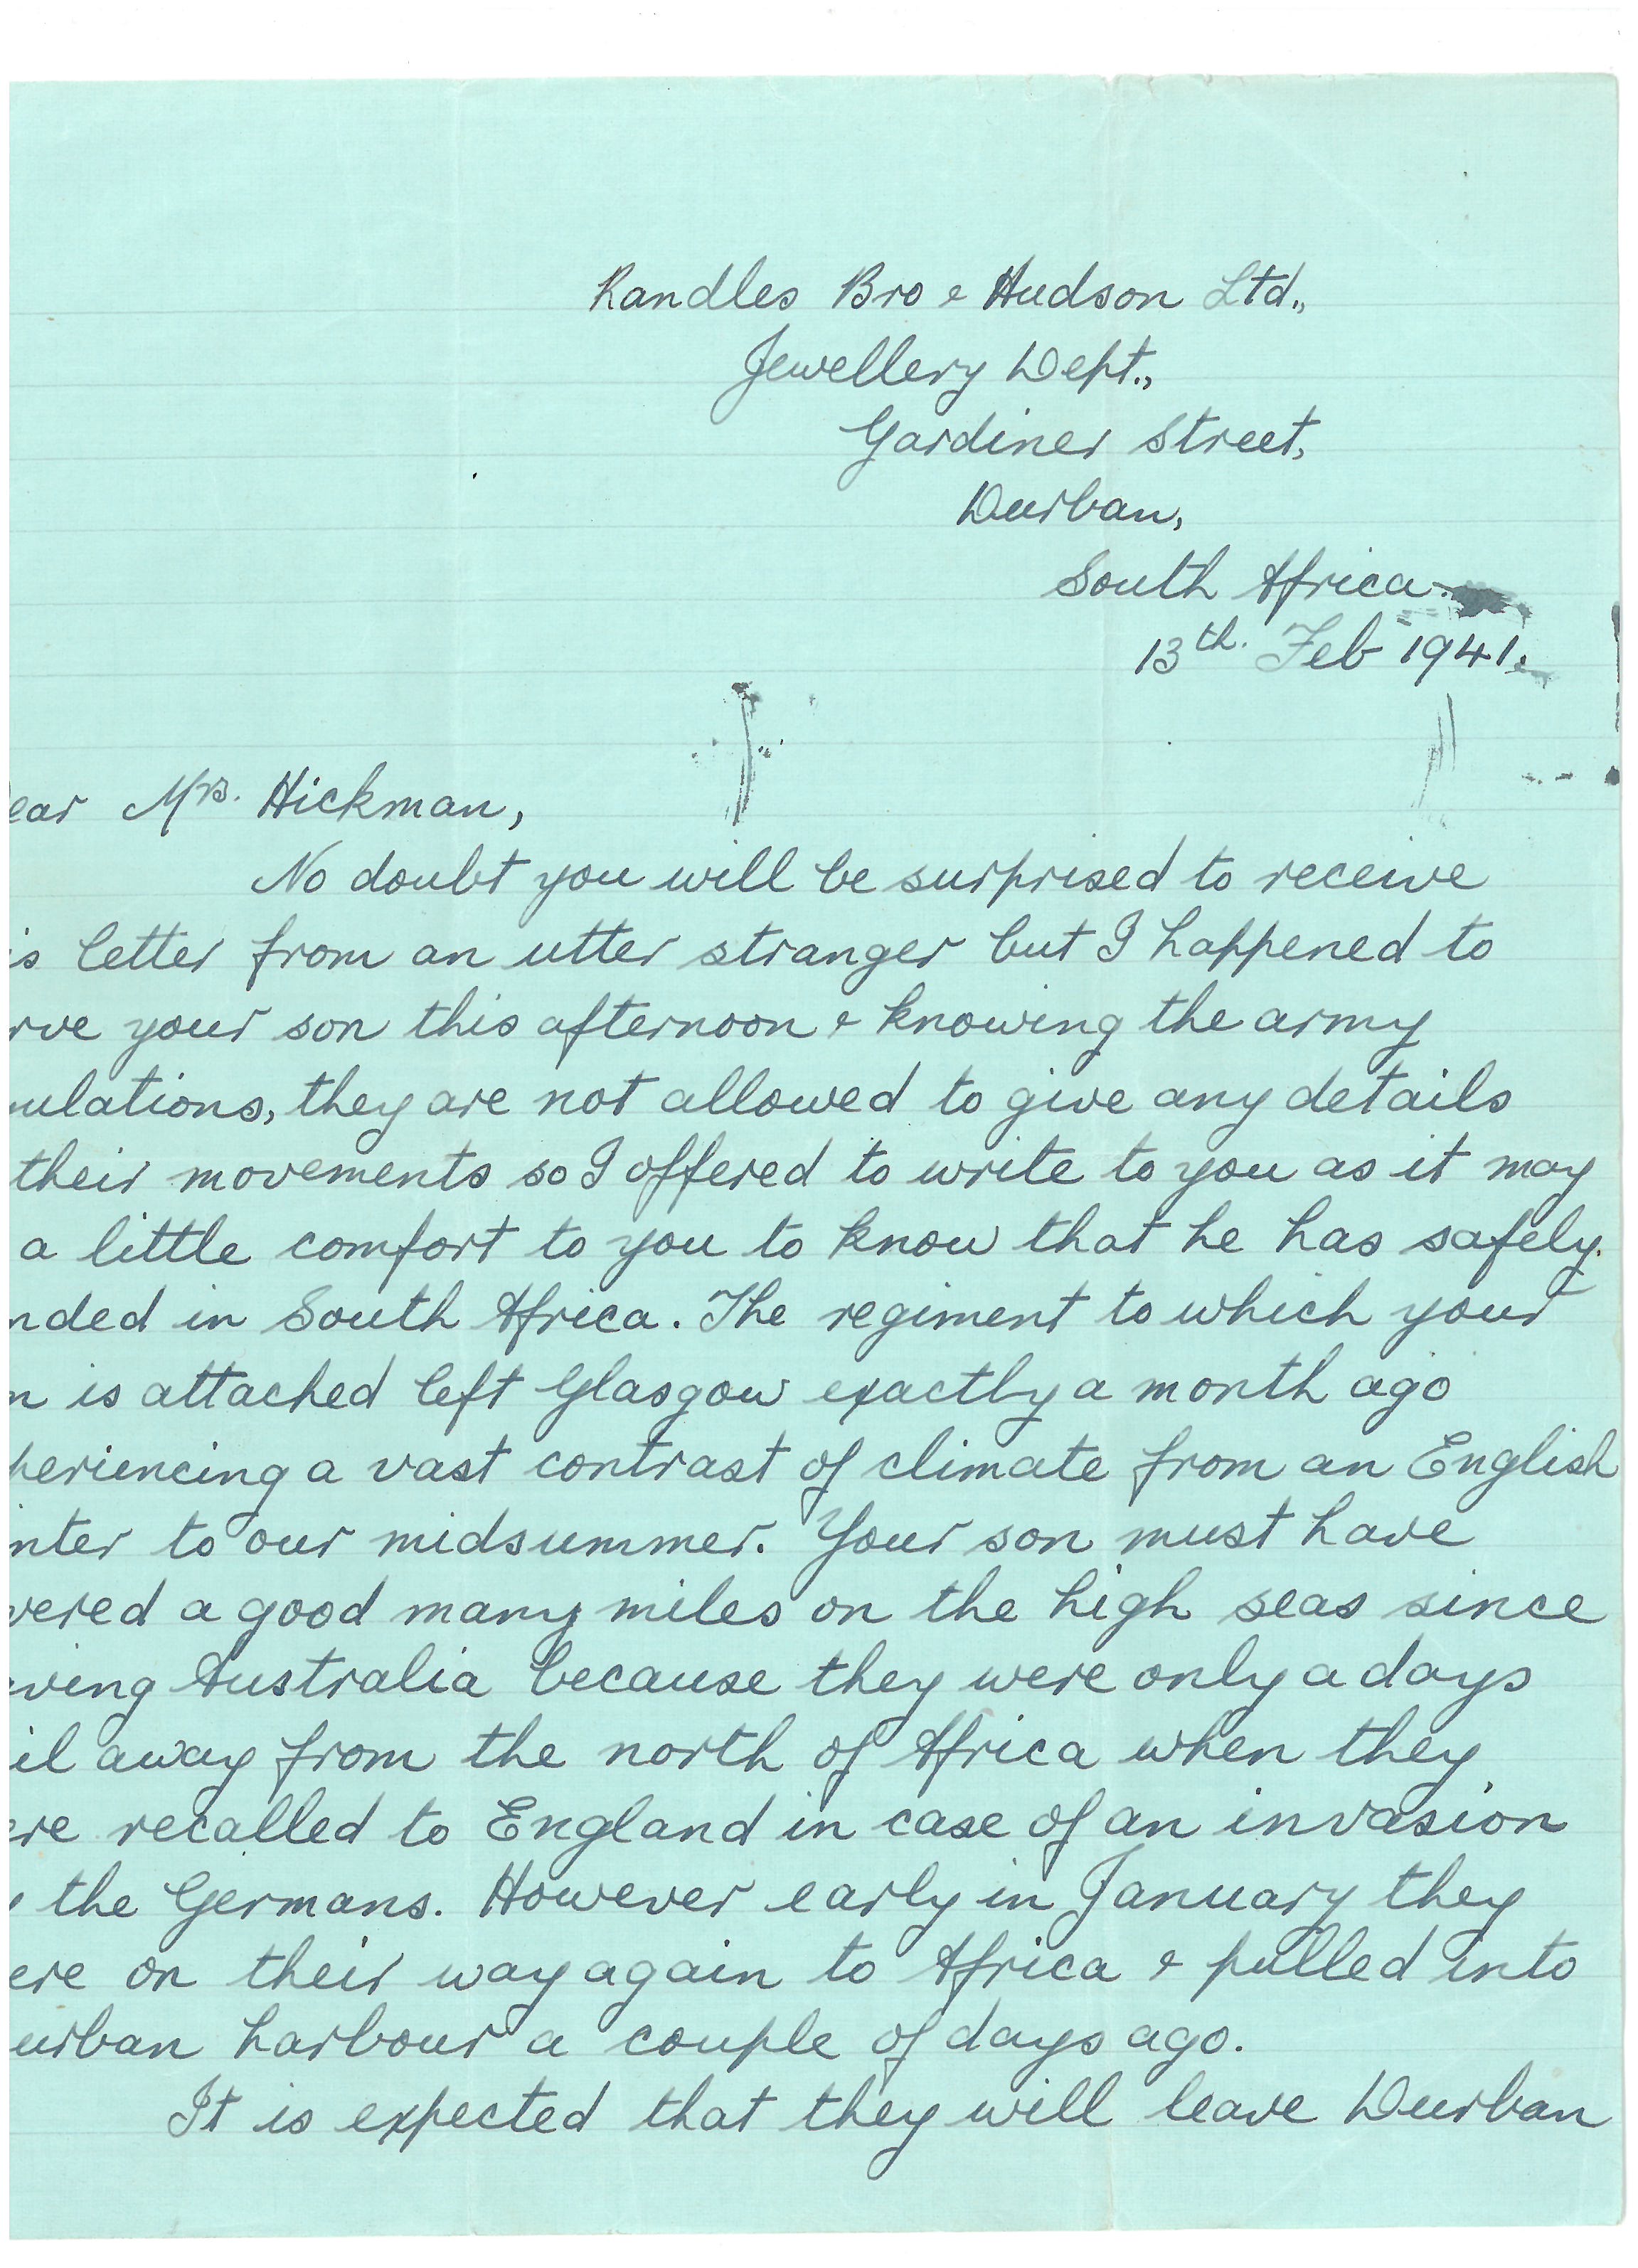 Randles Bro & Hudson Ltd.,
Jewellery Dept.,
Gardiner Street,
Durban,
South Africa.
13th. Feb 1941.
ear Mrs. Hickman,
No doubt you will be surprised to receive
is letter from an utter stranger but I happened to
rve your son this afternoon & knowing the army
ulations, they are not allowed to give any details
their movements so I offered to write to you as it may
a little comfort to you to know that he has safely
nded in South Africa. The regiment to which your
n is attached left Glasgow exactly a month ago
periencing a vast contrast of climate from an English
nter to our midsummer. Your son must have
vered a good many miles on the high seas since
ving Australia because they were only a days
il away from the north of Africa when they
ere recalled to England in case of an invasion
the Germans. However early in January they
ere on their way again to Africa & pulled into
urban harbour a couple of days ago.
It is expected that they will leave Durban